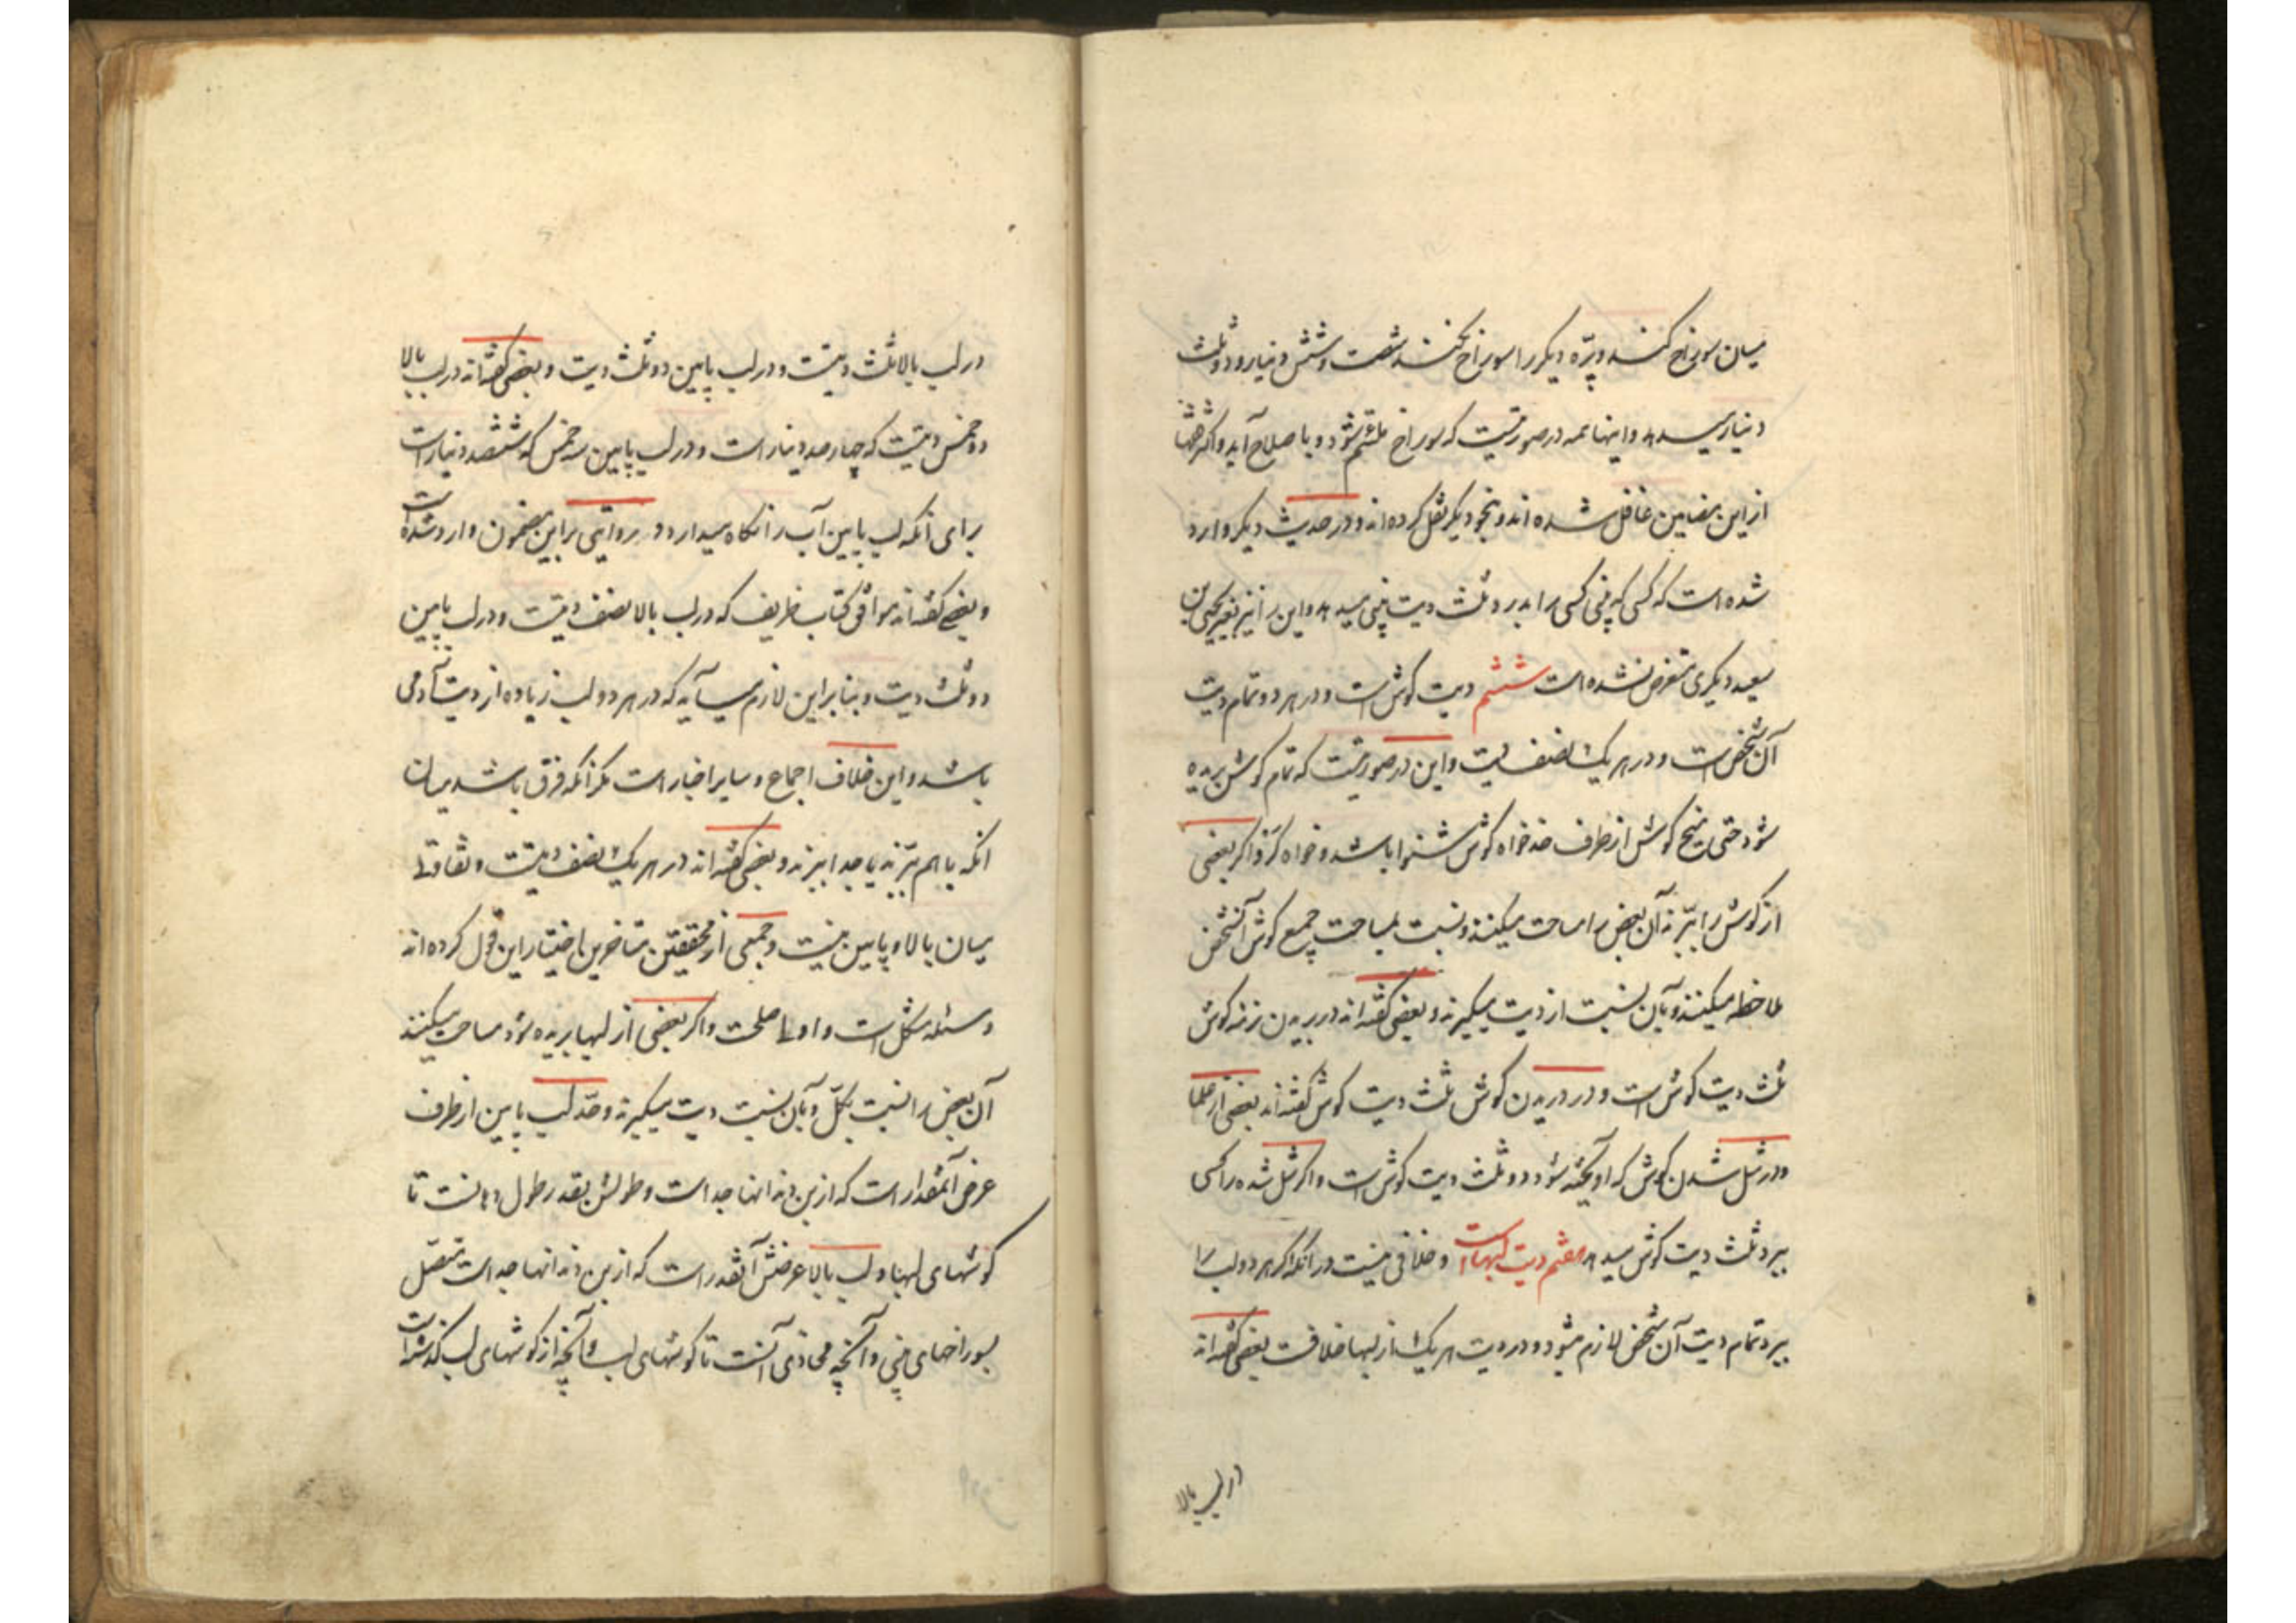 میان سوراخ کنند و پرّه دیکر را سوراخ نکنند شصت و شش دینار و دو ثلث
دینار میدهد و اینها همه در صورتیست که سوراخ ملتئم شود و با صلاح آید و اکثر فقها
از این مضامین غافل شده اند و بنحو دیکر نقل کرده اند و در حدیث دیکر وارد
شده است که کسی که بینی کسی را ببرد ثلث دیت بینی میدهد و این را نیز بغیر یحیی بن
سعید دیکری متعرض نشده است ششم دیت کوش است و در هر دو تمام دیت
آن شخص است و در هر یک نصف دیت و این در صورتیست که تمام کوش بریده
شود حتی بیخ کوش از طرف خد خواه کوش شنوا باشد و خواه کر و اکر بعضی
از کوش را ببرّند آن بعض را مساحت میکنند و نسبت بمساحت جمیع کوش آنشخص
ملاحظه میکنند و بآن نسبت از دیت میکیرند و بعضی کفته اند در بریدن نرمه کوش
ثلث دیت کوش است و در دریدن کوش ثلث دیت کوش کفته اند بعضی از علما
و در شل شدن کوش که اویخته شود دو ثلث دیت کوش است و اکر شل شده را کسی
ببرد ثلث دیت کوش میدهد هفتم دیت لبهاست و خلافی نیست در انکه اکر هر دو لب را
ببرد تمام دیت آن شخص لازم میشود و در دیت هر یک از لبها خلافست بعضی کفته اند
در لب بالا
در لب بالا ثلث دیتست و در لب پایین دو ثلث دیت و بعضی کفته اند در لب بالا
دو خمس دیتست که چهارصد دینار است و در لب پایین سه خمس که ششصد دینار است
برای انکه لب پایین آب را نکاه میدارد و روایتی براین مضمون وارد شده است
و بعضی کفته اند موافق کتاب ظریف که در لب بالا نصف دیتست و در لب پایین
دو ثلث دیت و بنابراین لازم میآید که در هر دو لب زیاده از دیت آدمی
باشد و این خلاف اجماع و سایر اخبار است مکر انکه فرق باشد میان
انکه با هم ببرّند یا جدا ببرند و بعضی کفته اند در هر یک نصف دیتست و تفاوتی
میان بالا و پایین نیست و جمعی از محققین متاخرین اختیار این قول کرده اند
و مسئله مشکل است و اولی صلحست و اکر بعضی از لبها بریده شود مساحت میکنند
آن بعض را نسبت بکلّ و بآن نسبت دیت میکیرند و حدّ لب پایین از طرف
عرض آنمقدار است که از بن دندانها جداست و طولش بقدر طول دهانست تا
کوشهای لبها و لب بالا عرضش آنقدر است که از بن دندانها جداست متصل
بسوراخهای بینی و آنچه محاذی آنست تا کوشهای لب و آنچه از کوشهای لب کذشته است